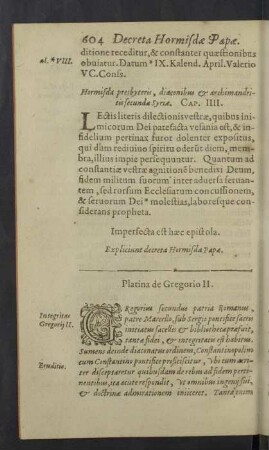 604 Decreta Hormisdæ Papæ.
al. * VIII.
ditione receditur, & constanter quæstionibus
obuiatur. Datum * IX. Kalend. April. Valerio
VC. Conss.
Hormisda presbyteris, diaconibus & archimandri-
tis secundæ Syriæ. CAP. IIII.
LEctis literis dilectionis vestræ, quibus ini-
micorum Dei patefacta vesania est, & in-
fidelium pertinax furor dolenter expositus,
qui dum rediuiuo spiritu oderūt diem, mem-
bra, illius impie persequuntur. Quantum ad
constantiæ vestræ agnitionē benedixi Deum,
fidem militum suorum inter aduersa seruan-
tem, sed rursum Ecclesiarum concussionem,
& seruorum Dei * molestias, laboresque con-
siderans propheta.
Imperfecta est hæc epistola.
Expliciunt decreta Hormisdæ Papæ.
Platina de Gregorio II.
Integritas
Gregorij II.
GRegorius secundus patria Romanus,
patre Marcello, sub Sergio pontifice sacris
initiatus sacellis & bibliothecæ præfuit,
tantæ fidei, & integritatis est habitus.
Sumens deinde diaconatus ordinem, Constantinopolim
cum Constantino pontifice proficiscitur,
Eruditio.
vbi cum acri-
ter disceptaretur quibusdam de rebus ad fidem perti-
nentibus, ita acute respondit, vt omnibus ingenij sui,
& doctrinæ admirationem iniiceret. Tanta cum